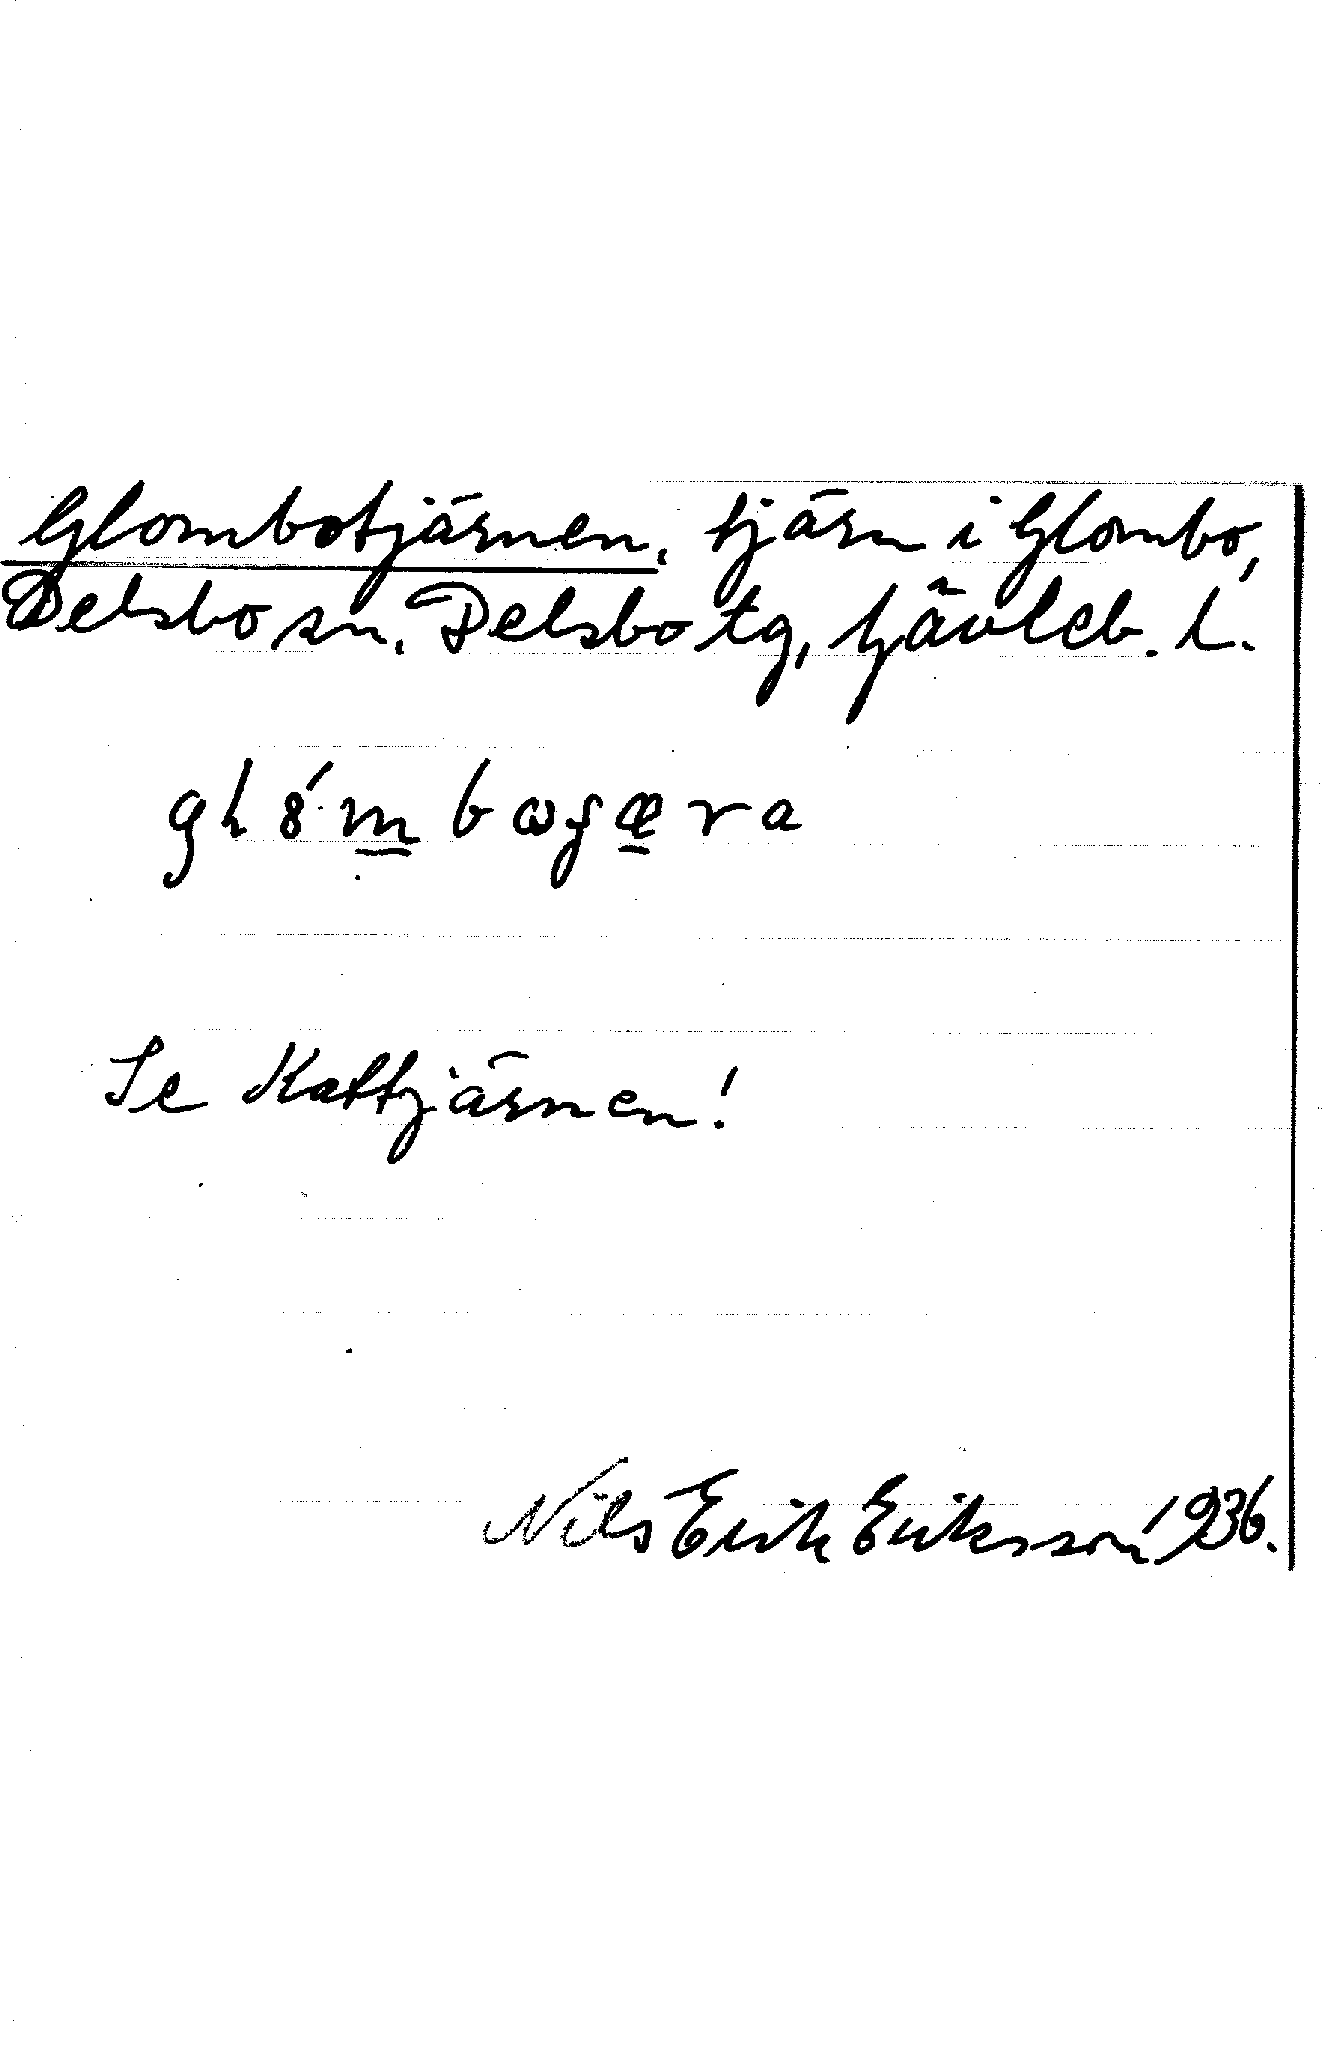 Glombotjärnen. tjärn i Glombo,
Delsbo sn. Delsbo tg, Gävleb. l.
Se Kattjärnen!
Nils Erik Eriksson 1936.